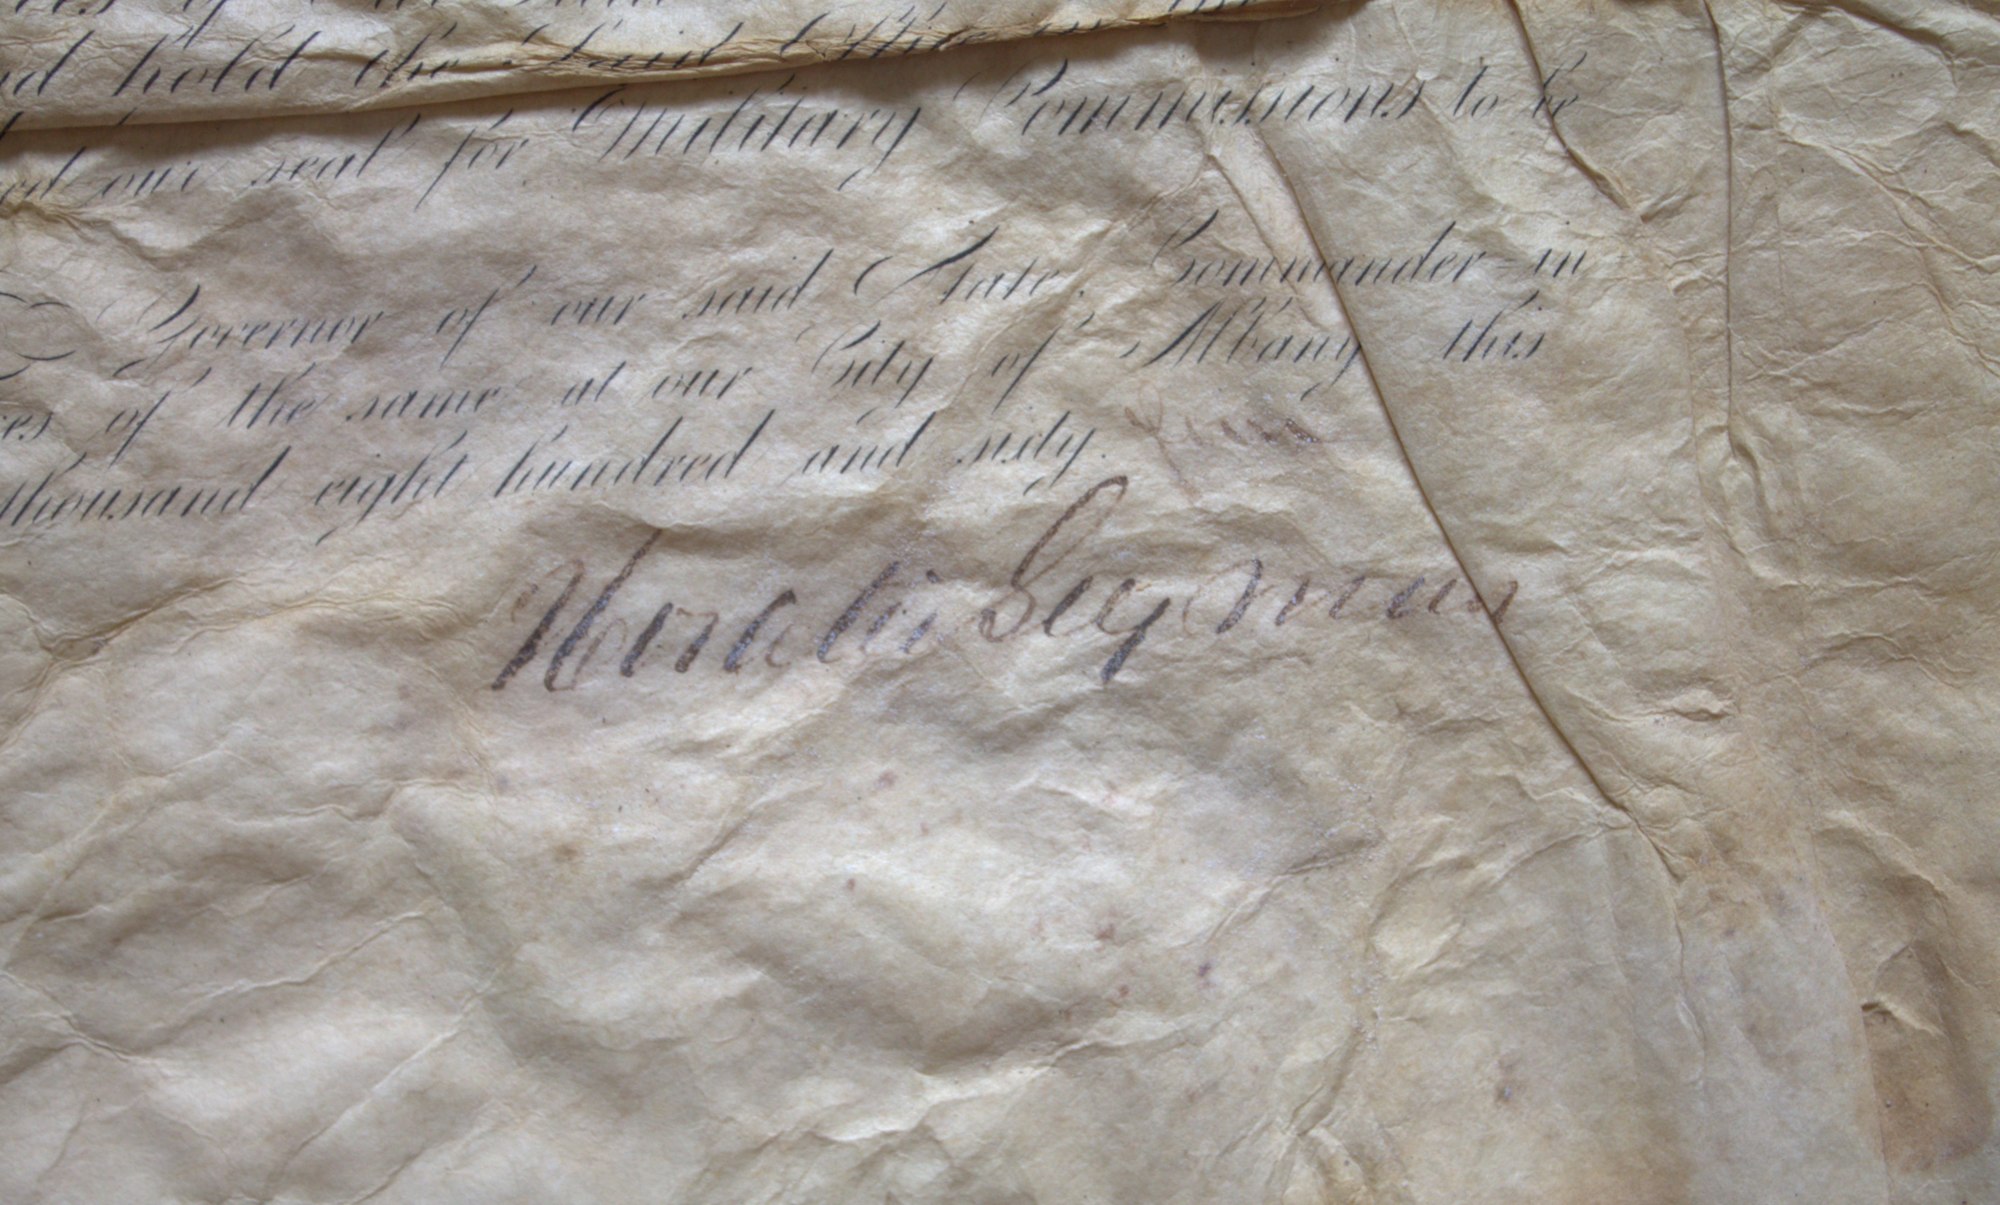 hold the said Office
our seal for Military Commissions to be
Governor of our said State, Commander-in-
of the same at our City of Albany this
thousand eight hundred and sixty four
Horatio Seymour